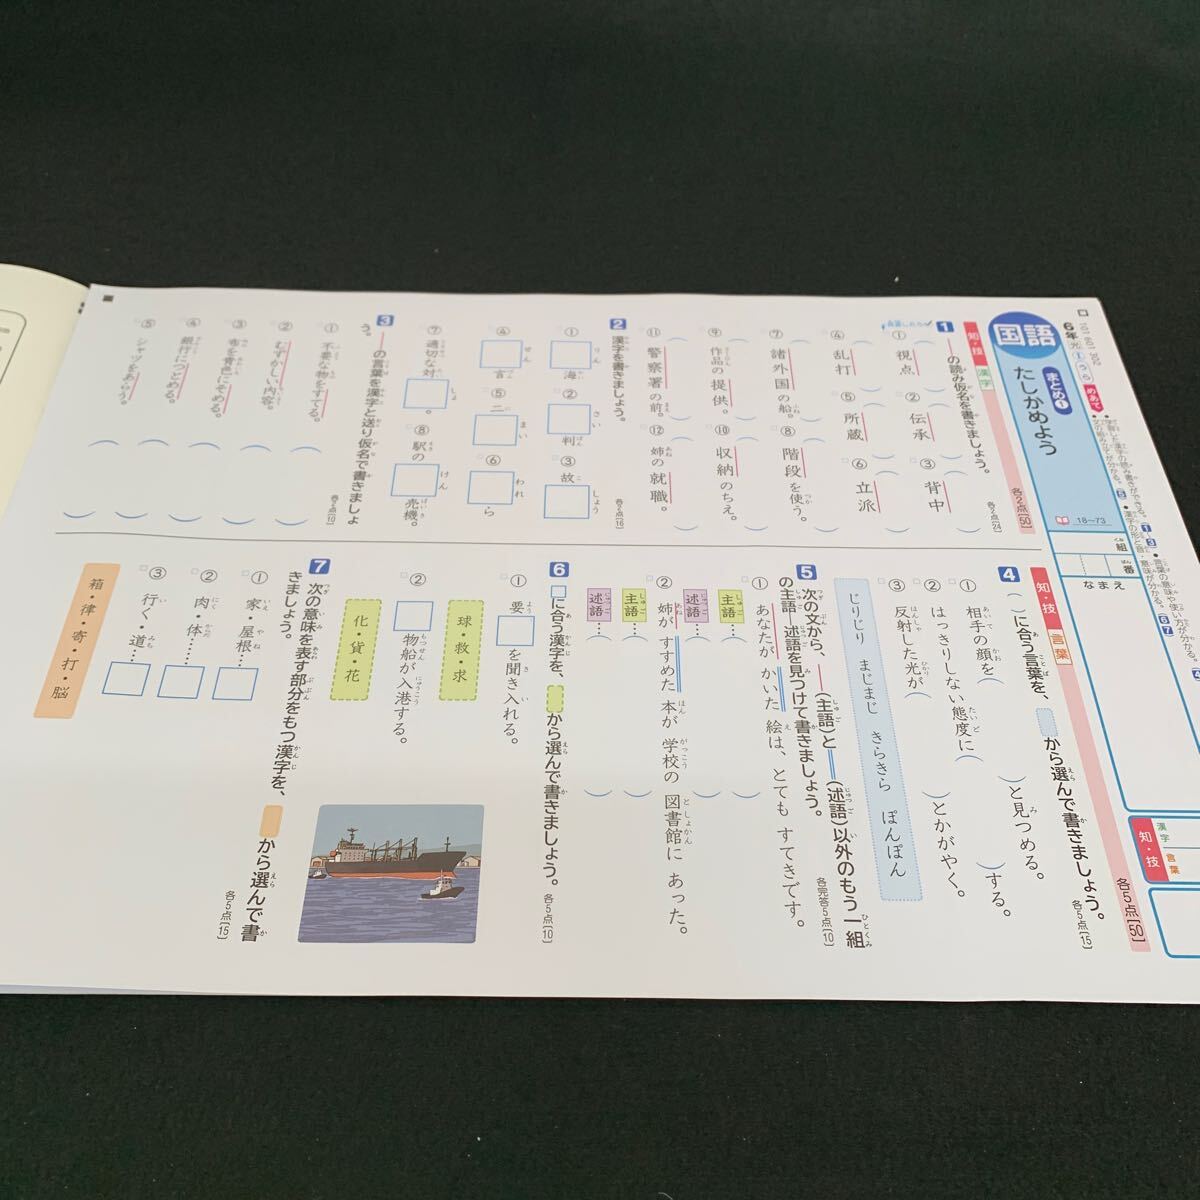 6年 光 ① うら
101 401 302
国語
まとめ①
たしかめよう
18〜73
めあて
組
番
なまえ
知・技
漢字
言葉
知・技 漢字
各2点[50]
1 ――の読み仮名を書きましょう。
各2点[24]
① 視点
② 伝承
③ 背中
④ 乱打
⑤ 所蔵
⑥ 立派
⑦ 諸外国の船。
⑧ 階段を使う。
⑨ 作品の提供。
⑩ 収納のちえ。
⑪ 警察署の前。
⑫ 姉の就職。
2 漢字を書きましょう。
各2点[16]
① りん 海
② さい 判
③ 故 しょう
④ せん 言
⑤ 二 まい
⑥ われ ら
⑦ 適切な対 しょ 。
⑧ 駅の けん 売機。
3 ――の言葉を漢字と送り仮名で書きましょう。
各2点[10]
① 不要な物をすてる。
② むずかしい内容。
③ 布を青色にそめる。
④ 銀行につとめる。
⑤ シャツをあらう。
知・技 言葉
各5点[50]
4 ( )に合う言葉を、 から選んで書きましょう。
各5点[15]
① 相手の顔を( )と見つめる。
② はっきりしない態度に( )する。
③ 反射した光が( )とかがやく。
じりじり まじまじ きらきら ぽんぽん
5 次の文から、――(主語)と＝＝(述語)以外のもう一組の主語―述語を見つけて書きましょう。
各完答5点[10]
① あなたが かいた 絵は、とても すてきです。
主語…( )
述語…( )
② 姉が すすめた 本が 学校の 図書館に あった。
主語…( )
述語…( )
6 □に合う漢字を、 から選んで書きましょう。
各5点[10]
① 要□を聞き入れる。
球・救・求
② □物船が入港する。
化・貨・花
7 次の意味を表す部分をもつ漢字を、 から選んで書きましょう。
各5点[15]
① 家・屋根…
② 肉・体……
③ 行く・道…
箱・律・寄・打・脳